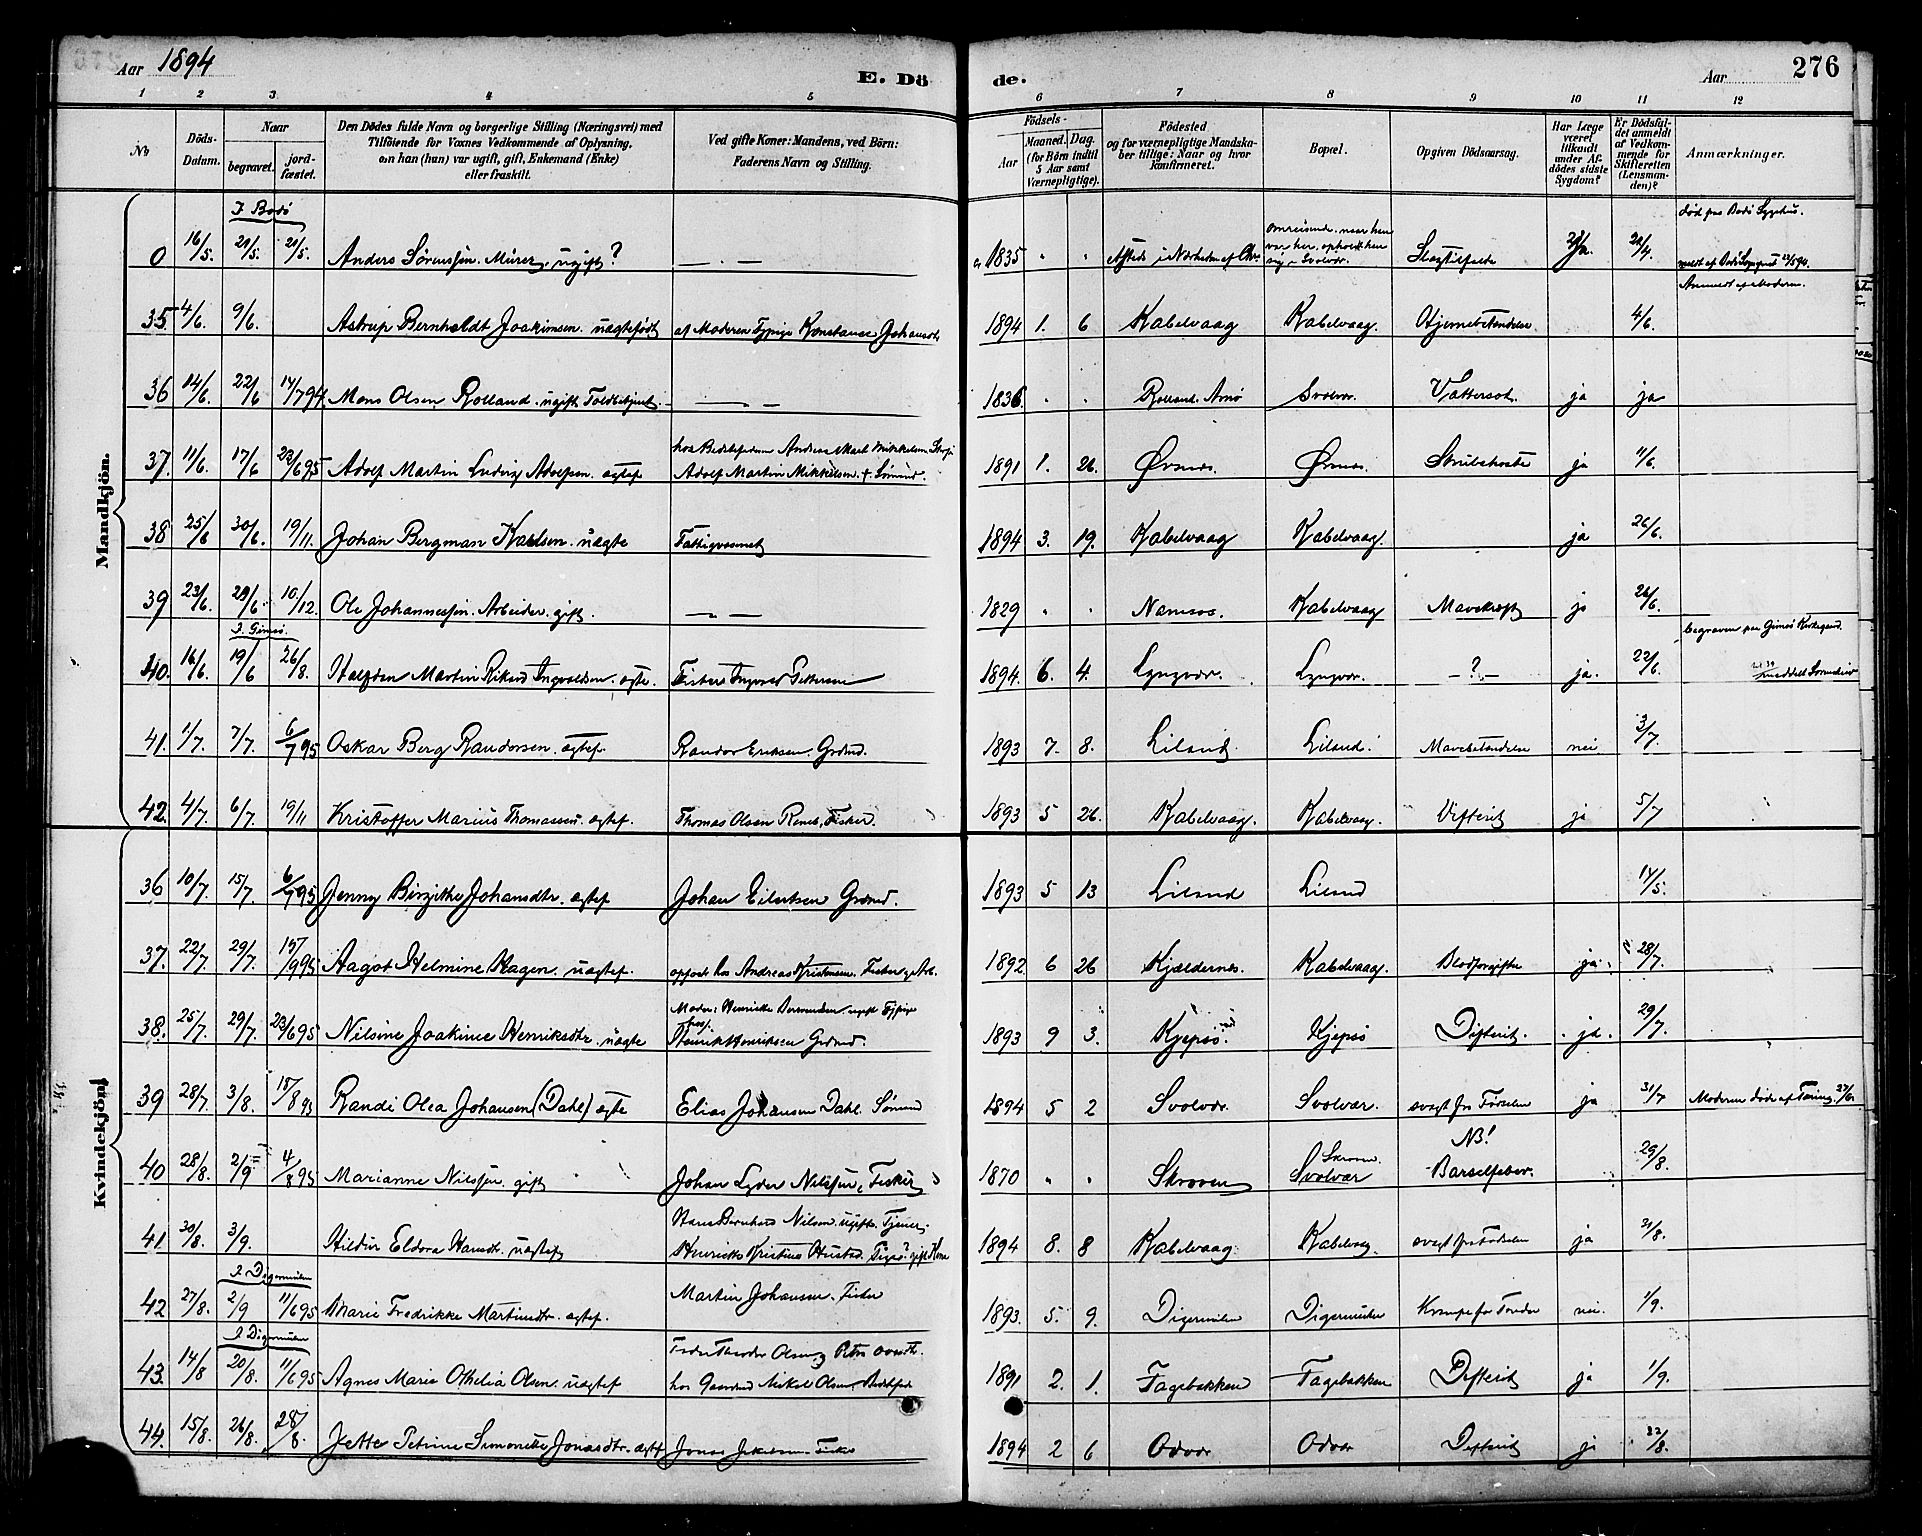 Aar 1894
E. Dö de.
Aar
276
1 2 3 4 5 6 7 8 9 10 11 12
No
Döds-Datum.
Naar
begravet.
jord-fæstet.
Den Dödes fulde Navn og borgerlige Stilling (Næringsvei) med
Tilföiende for Voxnes Vedkommende af Oplysning,
om han (hun) var ugift, gift, Enkemand (Enke)
eller fraskilt.
Ved gifte Koner: Mandens, ved Börn:
Faderens Navn og Stilling.
Födsels-
Aar
Maaned. Dag.
(for Börn indtil
5 Aar samt
Værnepligtige).
Födested
og for værnepligtige Mandska-
ber tillige: Naar og hvor
konfirmeret.
Bopæl.
Opgiven Dödsaarsag.
Har Læge
været
tilkaldt
under Af-
dödes sidste
Sygdom?
Er Dödsfal-
det anmeldt
af Vedkom-
mende for
Skifteretten
(Lensman-
den)?
Anmærkninger.
Mandkjön.
I Bodö
död paa Bodö Sygehus.
0 16/5. 21/5. 21/5. Anders Sörenssen. Murer, ugift? — . — 1835 " " Slagtilfælde ja
Anmeldt af Moderen.
35. 4/6. 9/6. Astrup Bernholdt Joakimsen. uægtefödt af Moderen Tjpige Konstanse Johansdt. 1894 1. 6 Kabelvaag Kabelvaag. Hjernebetændelse 4/6.
36 14/6. 22/6 14/7 94. Mons Olsen Rolland. ugift Toldbetjent. — — 1836. " " Rolland. Svolvær. Vattersot. ja ja
37. 11/6. 17/6 23/6 95 Adolf Martin Ludvig Adolfsen. ægtef. Adolf Martin Mikkelsen. 1891 1. 26. Örsnes. Örsnes. Strubehoste ja 11/6.
38 25/6 30/6. 19/11. Johan Bergman Karlsen. uægte Fattigvæsenet 1894 3. 19. Kabelvaag Kabelvaag. ja 26/6.
39 23/6. 29/6. 10/12. Ole Johannessen. Arbeider. gift. — — 1829 " " Namsos. Kabelvaag Mavekræft ja 26/6.
I Gimsö.
begraven paa Gimsö Kirkegaard.
40. 16/6. 19/6 26/8. Halfdan Martin Rikard Ingvaldsen. ægte. Fisker Ingvald Pettersen 1894. 6. 4. Lyngvær. Lyngvær. — ? — ja. 22/6.
41. 1/7. 7/7. 6/7 95 Oskar Berg Randorsen. ægtef. Randor Eriksen. Grdmd. 1893 7. 8. Liland. Liland. Mavebetændelse nei 3/7.
42. 4/7. 6/7. 19/11 Kristoffer Marius Thomassen. ægtef. Thomas Olsen, Fisker. 1893 5 26. Kabelvaag. Kabelvaag. Difterit ja 5/7
Kvindekjön.
36 10/7. 15/7. 6/7 95 Jenny Birgitte Johansdtr. ægtef Johan Eilertsen Grdmd. 1893 5 13 Liland Liland 14/5.
37. 22/7. 29/7. 15/9 95 Aagot Helmine Hagen. uægtef. opfost. hos Andreas Kristensen. 1892 6 26 Kjældernes. Kabelvaag. Blodforgiftn ja. 28/7.
Moder: Henrikke ugift Tjpige
38. 25/7. 29/7. 23/6 95 Nilsine Joakime Henriksdtr. uægte Henrik Henriksen Grdmd. 1893 9 3. Kjepsö. Kjepsö Difterit. ja. 29/7.
39 28/7. 3/8. 18/8 93 Randi Olea Johansen (Dahl) ægte Elias Johansen Dahl. Sömand 1894 5 2 Svolvær. Svolvær. svagt fra Födselen ja 31/7 Moderen döde af Tæring. 27/6.
40 28/8. 2/9. 4/8 95 Marianne Nilssen. gift Johan Lyder Nilssen, Fisker 1870 " " Skroven Skroven Svolvær NB! Barselfeber. 29/8.
Nilsen ugift. Tjener
41. 30/8. 3/9. Hildur Eldora Hansdtr. uægtef. Henrikke Kristine Hustad. 1894 8. 8 Kabelvaag. Kabelvaag. svagt fra Födselen ja 31/8.
I Digermulen
42. 27/8. 2/9 11/6 95 Marie Fredrikke Martinsdtr. ægtef. Martin Johansen. Fisker 1893. 5. 9. Digermulen Digermulen Krampe for Tænder nei. 1/9.
I Digermulen
43. 14/8 20/8. 11/6 95 Agnes Marie Othelia Olsen. uægtef hos Gaardmd Mikal Olsen. 1891 2. 1. Fagebakken Fagebakken Difterit ja 1/9.
44. 15/8. 26/8. 28/8. Jette Petrine Simonette Jonasdtr. ægtef Jonas Jakobsen. Fisker 1894 2 6 Odvær Odvær Difterit ja 22/8.